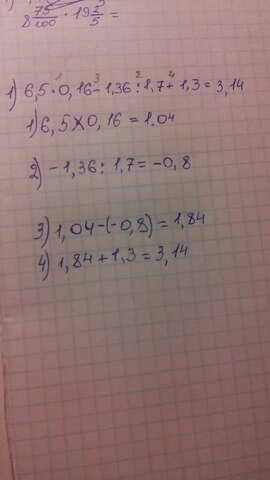 8 75/100 · 19 2/5 =
1) 6,5 · 0,16 - 1,36 : 1,7 + 1,3 = 3,14
1) 6,5 × 0,16 = 1.04
2) -1,36 : 1,7 = -0,8
3) 1,04 - (-0,8) = 1,84
4) 1,84 + 1,3 = 3,14